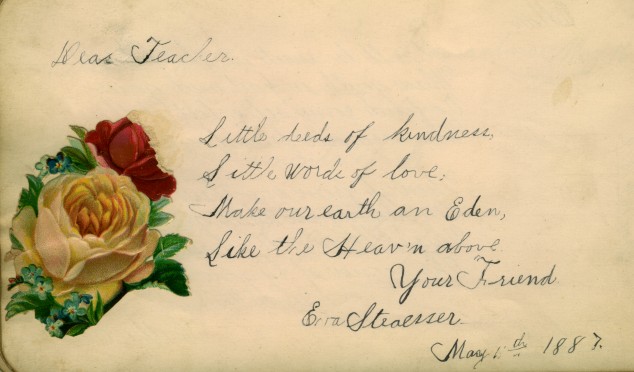 Dear Teacher.
Little deeds of kindness,
Little words of love;
Make our earth an Eden,
Like the Heav'n above
Your Friend
May th 1887.